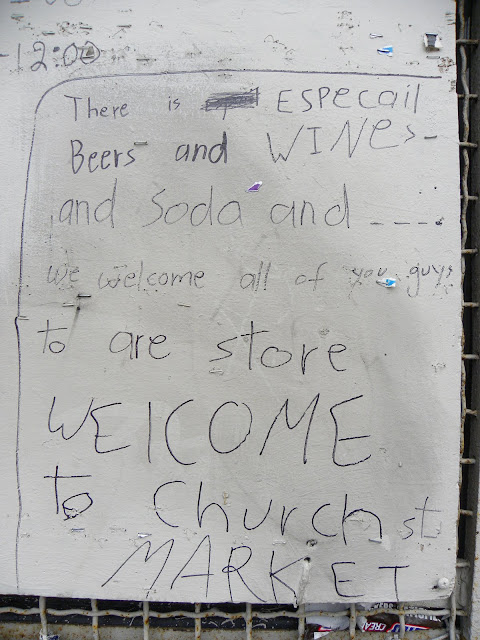 -12:00
There is ESPECail
Beers and WINes-
and Soda and ----.
we welcome all of you guys
to are store
WElCOME
to Church st
MARKET
CREA